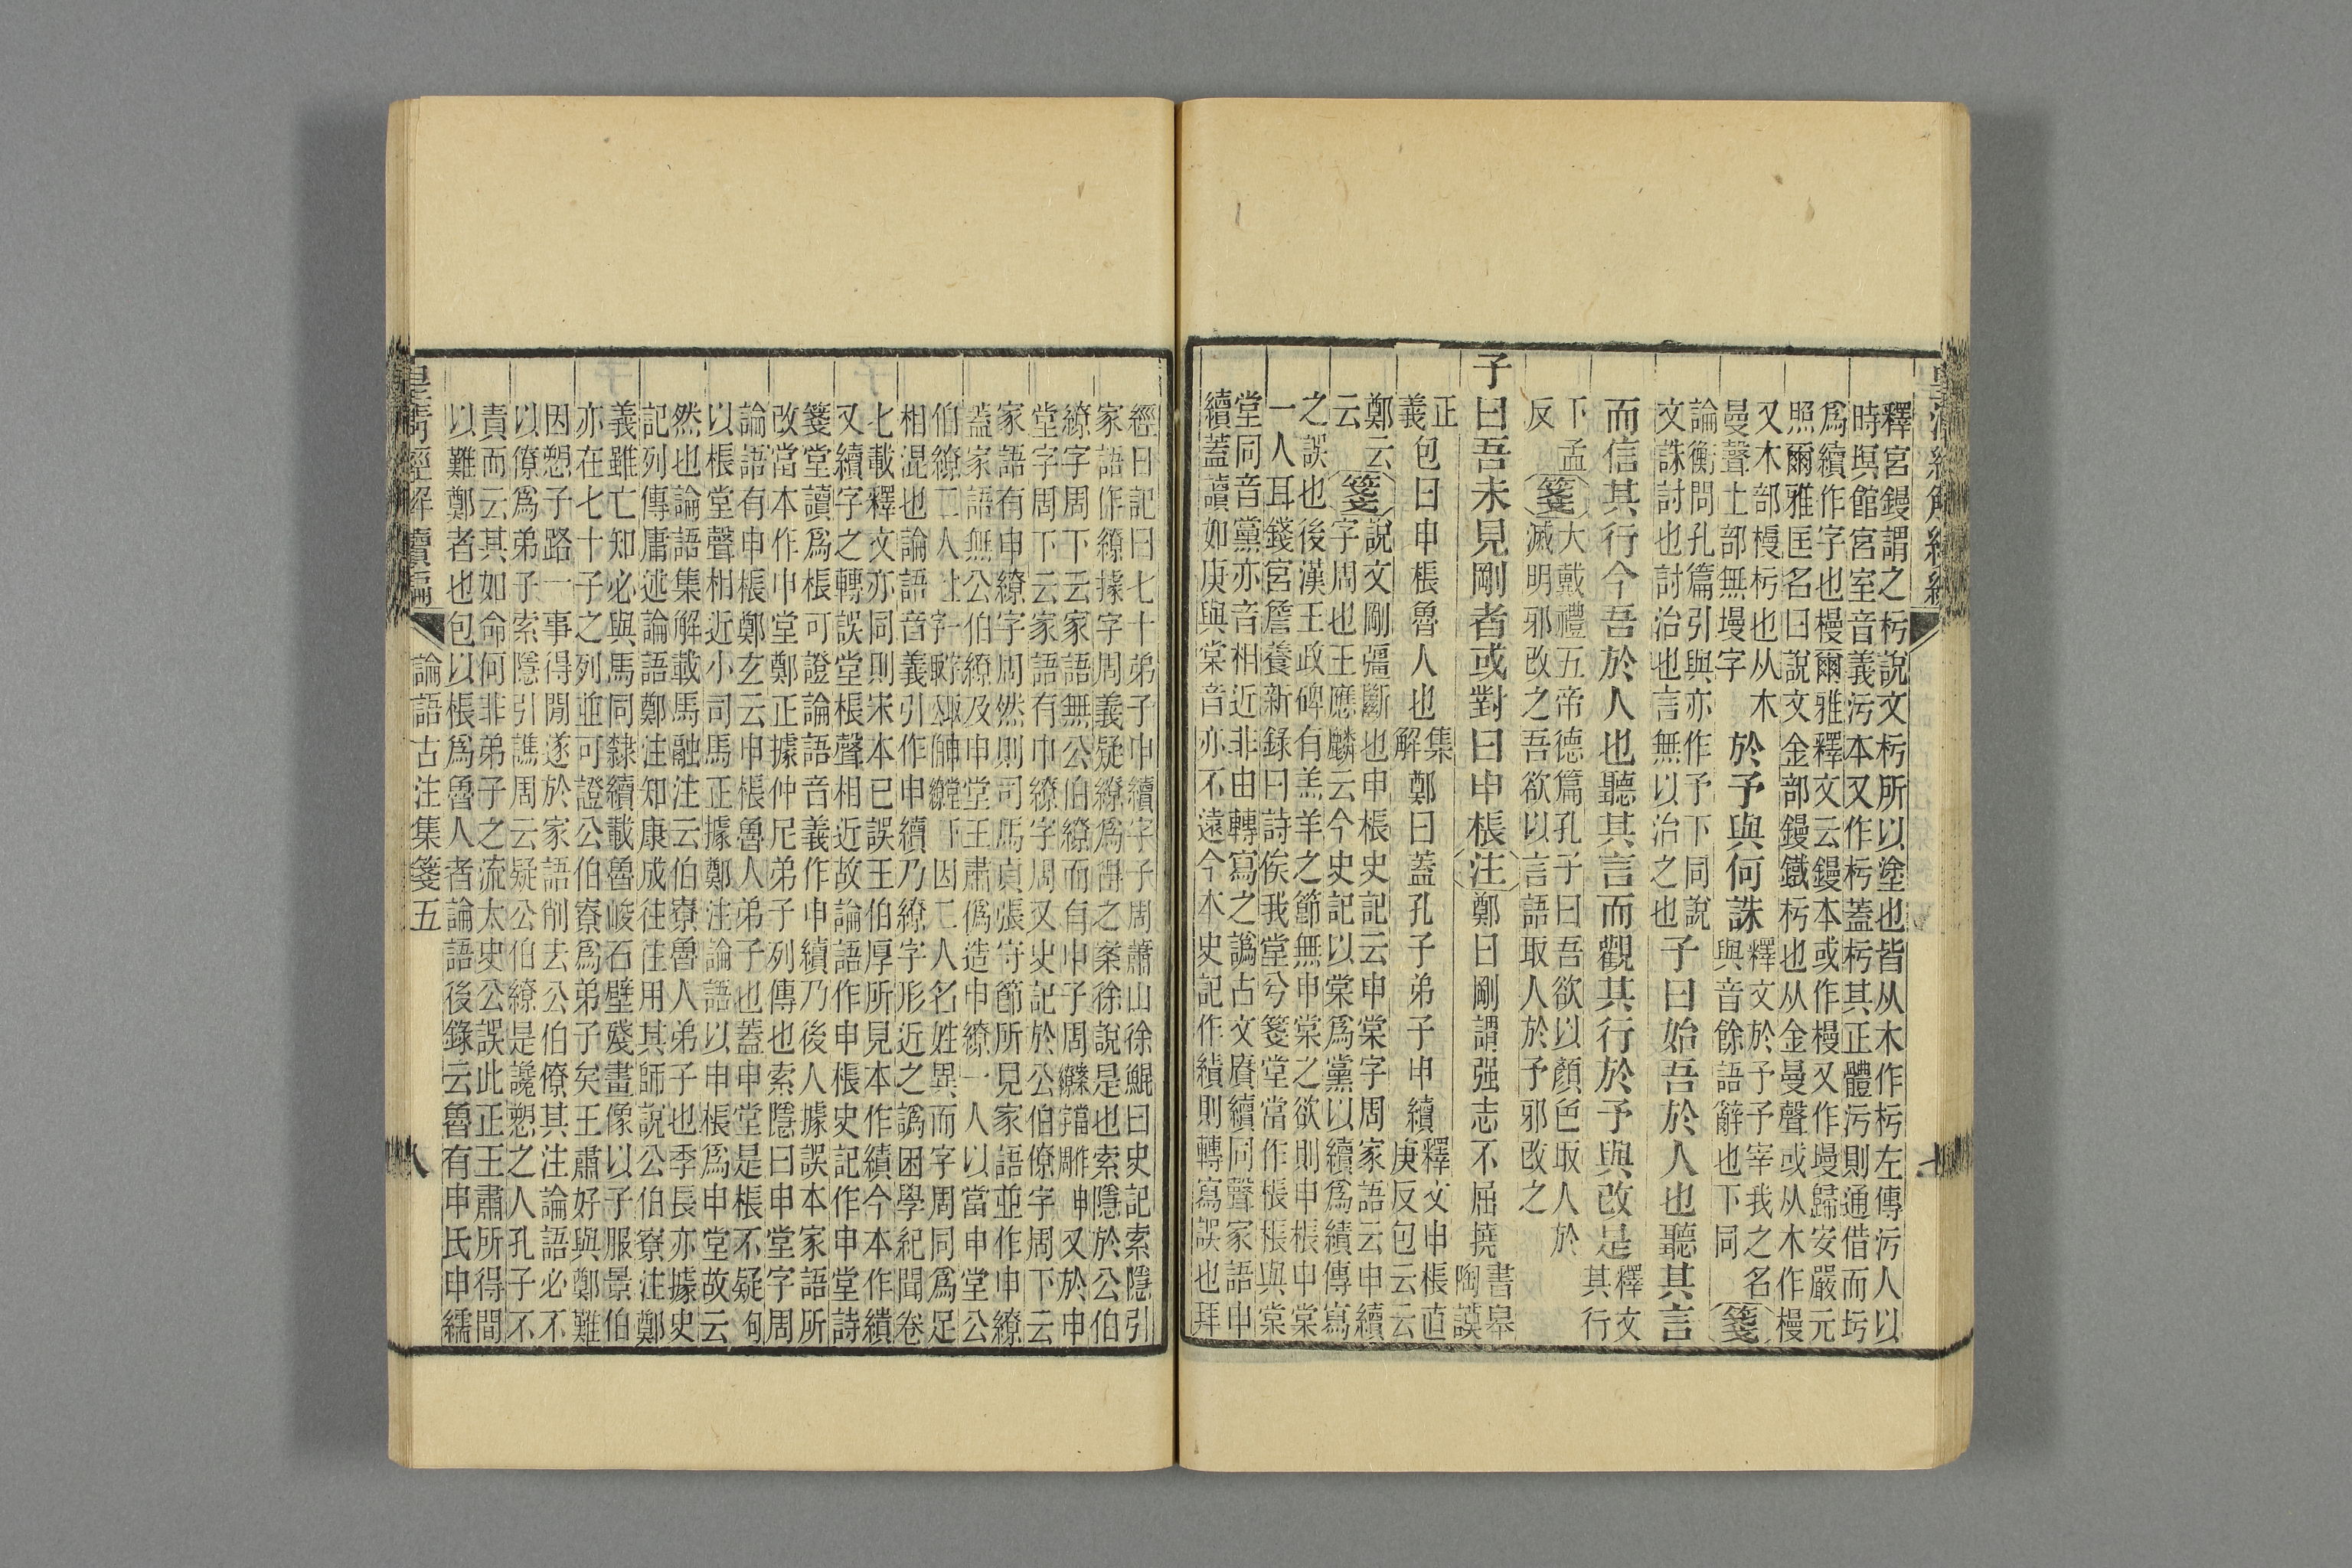 釋宮鏝謂之杇說文杇所以塗也皆从木作杇左傳污人以
時塓館宮室音義污本又作杇蓋杇其正體污則通借而圬
爲續作字也槾爾雅釋文云鏝本或作槾又作墁歸安嚴元
照爾雅匡名曰說文金部鏝鐵杇也从金曼聲或从木作槾
又木部槾杇也从木
曼聲土部無墁字
於予與何誅
釋文於予予宰我之名
與音餘語辭也下同
箋
論衡問孔篇引與亦作予下同說
文誅討也討治也言無以治之也
子曰始吾於人也聽其言
而信其行今吾於人也聽其言而觀其行於予與改是
釋文
其行
下孟
反
箋
大戴禮五帝德篇孔子曰吾欲以顏色取人於
滅明邪改之吾欲以言語取人於予邪改之
子曰吾未見剛者或對曰申棖
注
鄭曰剛謂强志不屈撓
書皋
陶謨
正
義
包曰申棖魯人也
集
解
鄭曰蓋孔子弟子申續
釋文申棖直
庚反包云云
鄭云
云
箋
說文剛彊斷也申棖史記云申棠字周家語云申續
字周也王應麟云今史記以棠爲黨以續爲績傳寫
之誤也後漢王政碑有羔羊之節無申棠之欲則申棖申棠
一人耳錢宮詹養新錄曰詩俟我堂兮箋堂當作棖棖與棠
堂同音黨亦音相近非由轉寫之譌古文賡續同聲家語申
續蓋讀如庚與棠音亦不遠今本史記作績則轉寫誤也拜
皇清經解續編
七
經日記曰七十弟子申續字子周蕭山徐鯤曰史記索隱引
家語作繚據字周義疑繚爲譌之案徐說是也索隱於公伯
繚字周下云家語無公伯繚而有申子周又於申
堂字周下云家語有申繚字周又史記於公伯僚字周下云
家語有申繚字周然則司馬貞張守節所見家語並作申繚
蓋家語無公伯繚及申堂王肅僞造申繚一人以當申堂公
伯繚二人因二人名姓異而字周同爲足
相混也論語音義引作申續乃繚字形近之譌困學紀聞卷
七載釋文亦同則宋本已誤王伯厚所見本作績今本作續
又續字之轉誤堂棖聲相近故論語作申棖史記作申堂詩
箋堂讀爲棖可證論語音義作申續乃後人據誤本家語所
改當本作申堂鄭正據仲尼弟子列傳也索隱曰申堂字周
論語有申棖鄭玄云申棖魯人弟子也蓋申堂是棖不疑
以棖堂聲相近小司馬正據鄭注論語以申棖爲申堂故云
然也論語集解載馬融注云伯寮魯人弟子也季長亦據史
記列傳庸述論語鄭注知康成往往用其師說公伯寮注鄭
義雖亡知必與馬同隸續載魯峻石壁殘畫像以子服景伯
亦在七十子之列並可證公伯寮爲弟子矣王肅好與鄭難
因愬子路一事得閒遂於家語削去公伯僚其注論語必不
以僚爲弟子索隱引譙周云疑公伯繚是讒愬之人孔子不
責而云其如命何非弟子之流太史公誤此正王肅所得間
以難鄭者也包以棖爲魯人者論語後錄云魯有申氏申繻
皇清經解續編
論語古注集箋五
八